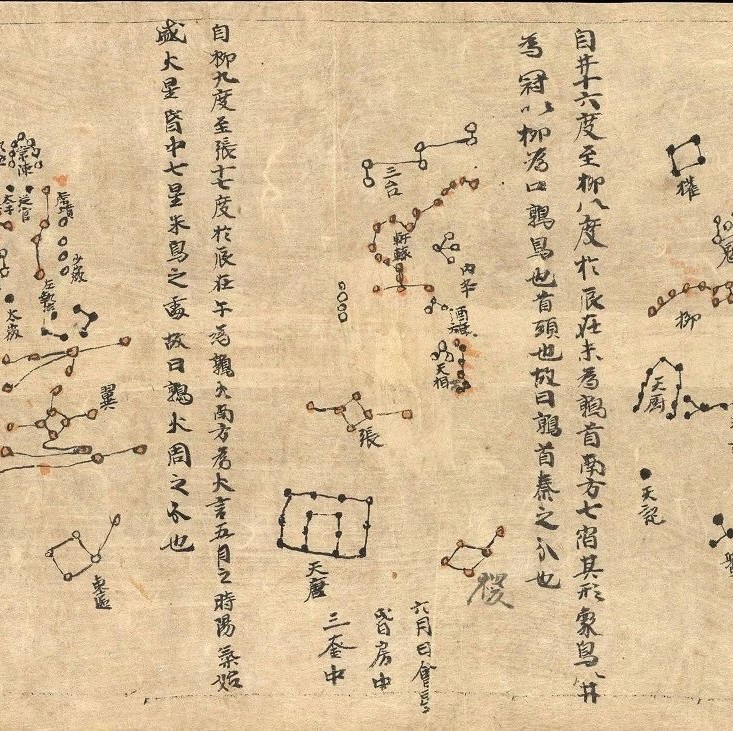 柳
天記
自井十六度至柳八度於辰在未為鶉首南方七宿其形象鳥以井
為冠以柳為口鶉鳥也首頭也故曰鶉首秦之分也
三台
軒轅
内平
酒旗
天相
張
稷
天廟
六月日會
昏房中
奎中
自柳九度至張十七度於辰在午為鶉火南方為火言五月之時陽氣始
盛火星昏中七星朱鳥之處故曰鶉火周之分也
常陳
虎賁
從官
太子
少微
翼
東甌